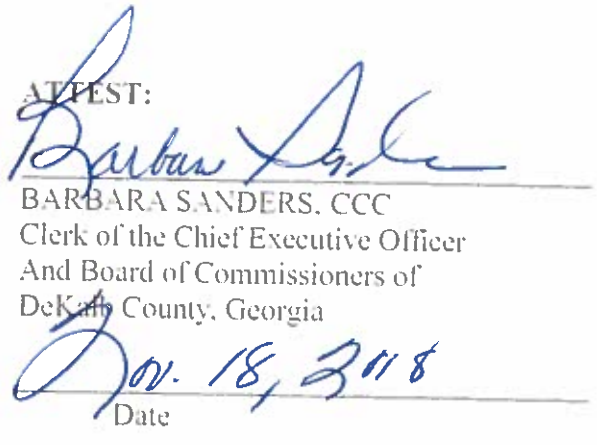 ATTEST:
Barbara Sanders
BARBARA SANDERS, CCC
Clerk of the Chief Executive Officer
And Board of Commissioners of
DeKalb County, Georgia
Nov. 18, 2018
Date